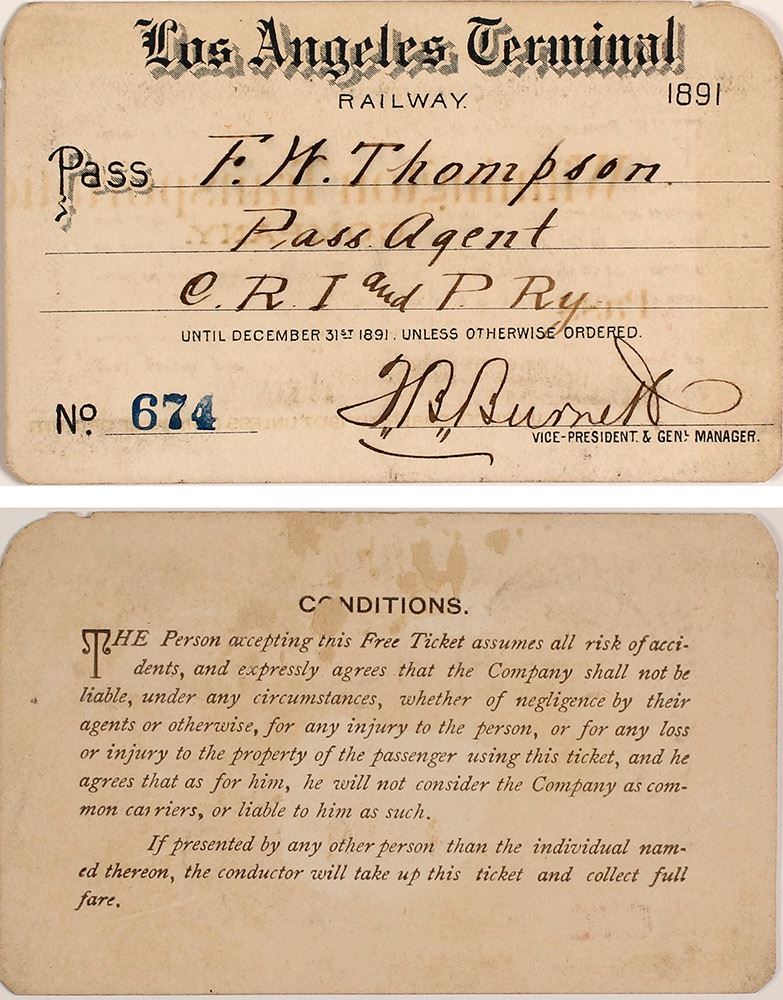 Los Angeles Terminal
RAILWAY.
1891
Pass F. W. Thompson
Pass. Agent
C. R. I and P. Ry
UNTIL DECEMBER 31ST 1891. UNLESS OTHERWISE ORDERED.
No. 674
T.B. Burnett
VICE-PRESIDENT. & GENL. MANAGER.
CONDITIONS.
THE Person accepting this Free Ticket assumes all risk of acci-
dents, and expressly agrees that the Company shall not be
liable, under any circumstances, whether of negligence by their
agents or otherwise, for any injury to the person, or for any loss
or injury to the property of the passenger using this ticket, and he
agrees that as for him, he will not consider the Company as com-
mon carriers, or liable to him as such.
If presented by any other person than the individual nam-
ed thereon, the conductor will take up this ticket and collect full
fare.